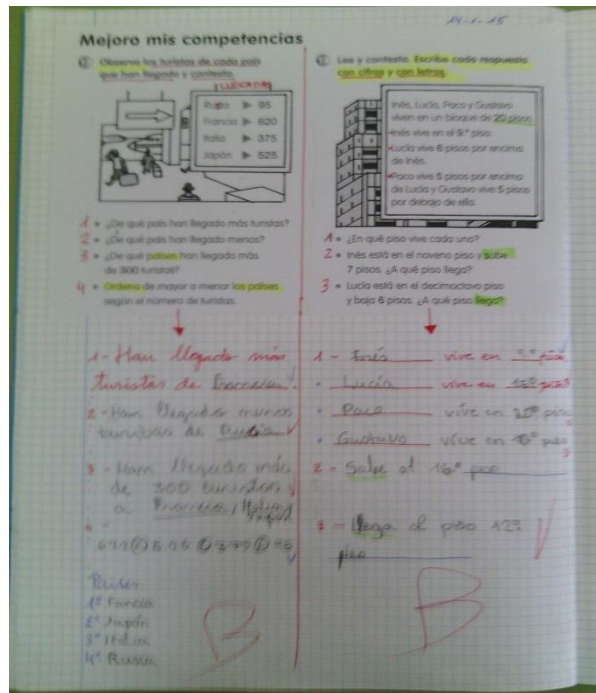 Mejoro mis competencias
Observa los turistas de cada país
que han llegado y contesta.
LLEGADAS
Rusia 95
Francia 620
Italia 375
Japón 525
1 • ¿De qué país han llegado más turistas?
2 • ¿De qué país han llegado menos?
3 • ¿De qué países han llegado más
de 300 turistas?
4 • Ordena de mayor a menor los países
según el número de turistas.
1- Han llegado más
turistas de Francia.
2- Han llegado menos
turistas de Rusia
3- Han llegado más
de 300 turistas
a Francia, Italia
4-
Países
1º Francia
2º Japón
3º Italia
4º Rusia
B
2 Lee y contesta. Escribe cada respuesta
con cifras y con letras.
Inés, Lucía, Paco y Gustavo
viven en un bloque de 20 pisos.
Inés vive en el 9.º piso.
Lucía vive 6 pisos por encima
de Inés.
Paco vive 5 pisos por encima
de Lucía y Gustavo vive 5 pisos
por debajo de ella.
1 • ¿En qué piso vive cada uno?
2 • Inés está en el noveno piso y sube
7 pisos. ¿A qué piso llega?
3 • Lucía está en el decimoctavo piso
y baja 6 pisos. ¿A qué piso llega?
1 - Inés vive en
• Lucía vive en
• Paco vive en 20º piso
• Gustavo vive en 10º piso
2 - Sube al 16º piso
3 - Llega al piso 12º
piso
B